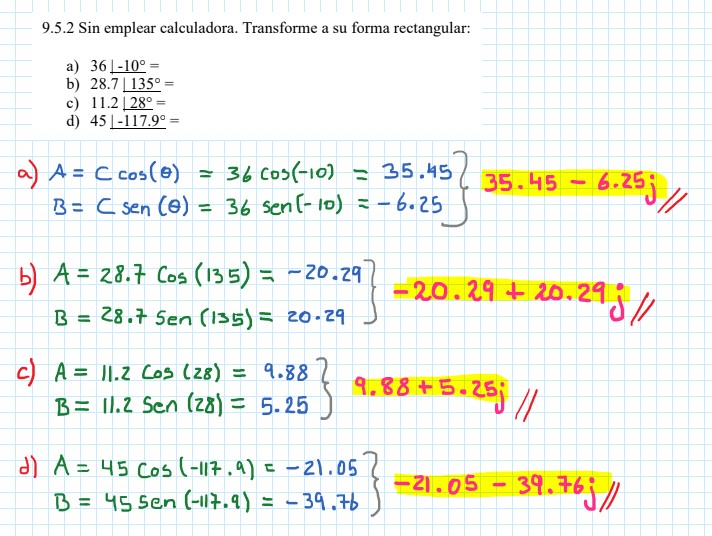 9.5.2 Sin emplear calculadora. Transforme a su forma rectangular:
a) 36 | -10° =
b) 28.7 | 135° =
c) 11.2 | 28° =
d) 45 | -117.9° =
a) A = C cos(θ) = 36 cos(-10) = 35.45
B = C sen (θ) = 36 sen(-10) = -6.25
35.45 - 6.25j //
b) A = 28.7 Cos (135) = -20.29
B = 28.7 Sen (135) = 20.29
-20.29 + 20.29j //
c) A = 11.2 Cos (28) = 9.88
B = 11.2 Sen (28) = 5.25
9.88 + 5.25j //
d) A = 45 Cos (-117.9) = -21.05
B = 45 Sen (-117.9) = -39.76
-21.05 - 39.76j //